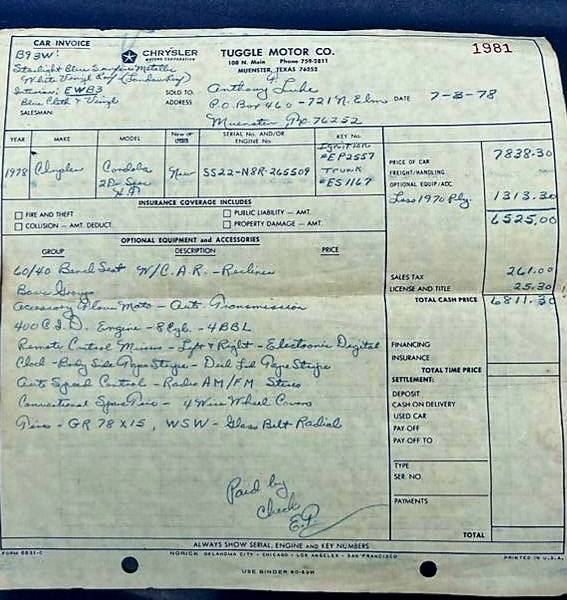 CAR INVOICE
1981
B93W:
CHRYSLER
MOTORS CORPORATION
TUGGLE MOTOR CO.
108 N. Main Phone 759-2811
MUENSTER, TEXAS 76252
Starlight Blue Sunfire Metallic
White Vinyl Roof (Landau)
Interior: EWB3
Blue Cloth & Vinyl
SALESMAN:
SOLD TO: Anthony Luke
ADDRESS P.O. Box 460 - 721 N. Elm
DATE 7-3-78
Muenster 76252
YEAR MAKE MODEL New or SERIAL No. AND/OR ENGINE No. KEY No.
1978 Chrysler Cordoba New SS22-N8R-265509
2 Dr.
H.T.
Ignition
#EP2557
Trunk
#ES1167
INSURANCE COVERAGE INCLUDES
FIRE AND THEFT PUBLIC LIABILITY — AMT.
COLLISION — AMT. DEDUCT. PROPERTY DAMAGE — AMT.
OPTIONAL EQUIPMENT and ACCESSORIES
GROUP DESCRIPTION PRICE
60/40 Bench Seat W/C.A.R. - Recliner
Basic Group
Auto Transmission
400 C.I.D. Engine - 8 Cyl. - 4 BBL
Remote Control Mirrors - Left & Right - Electronic Digital
Clock - Body Side Tape Stripe - Deck Lid Tape Stripe
Auto Speed Control - Radio AM/FM Stereo
Conventional Spare Tire - 4 Wire Wheel Covers
Tires - GR 78 X 15, WSW - Glass Belt Radial
Paid by
Check
E.P.
PRICE OF CAR 7838.30
FREIGHT/HANDLING
OPTIONAL EQUIP/ACC.
Less 1970 Ply. 1313.30
6525.00
SALES TAX 261.00
LICENSE AND TITLE 25.30
TOTAL CASH PRICE 6811.30
FINANCING
INSURANCE
TOTAL TIME PRICE
SETTLEMENT:
DEPOSIT
CASH ON DELIVERY
USED CAR
PAY OFF
PAY OFF TO
TYPE
SER. NO.
PAYMENTS
TOTAL
ALWAYS SHOW SERIAL, ENGINE AND KEY NUMBERS
FORM 6831-C
NORICK OKLAHOMA CITY - CHICAGO - LOS ANGELES - SAN FRANCISCO
PRINTED IN U.S.A.
USE BINDER 80-89H